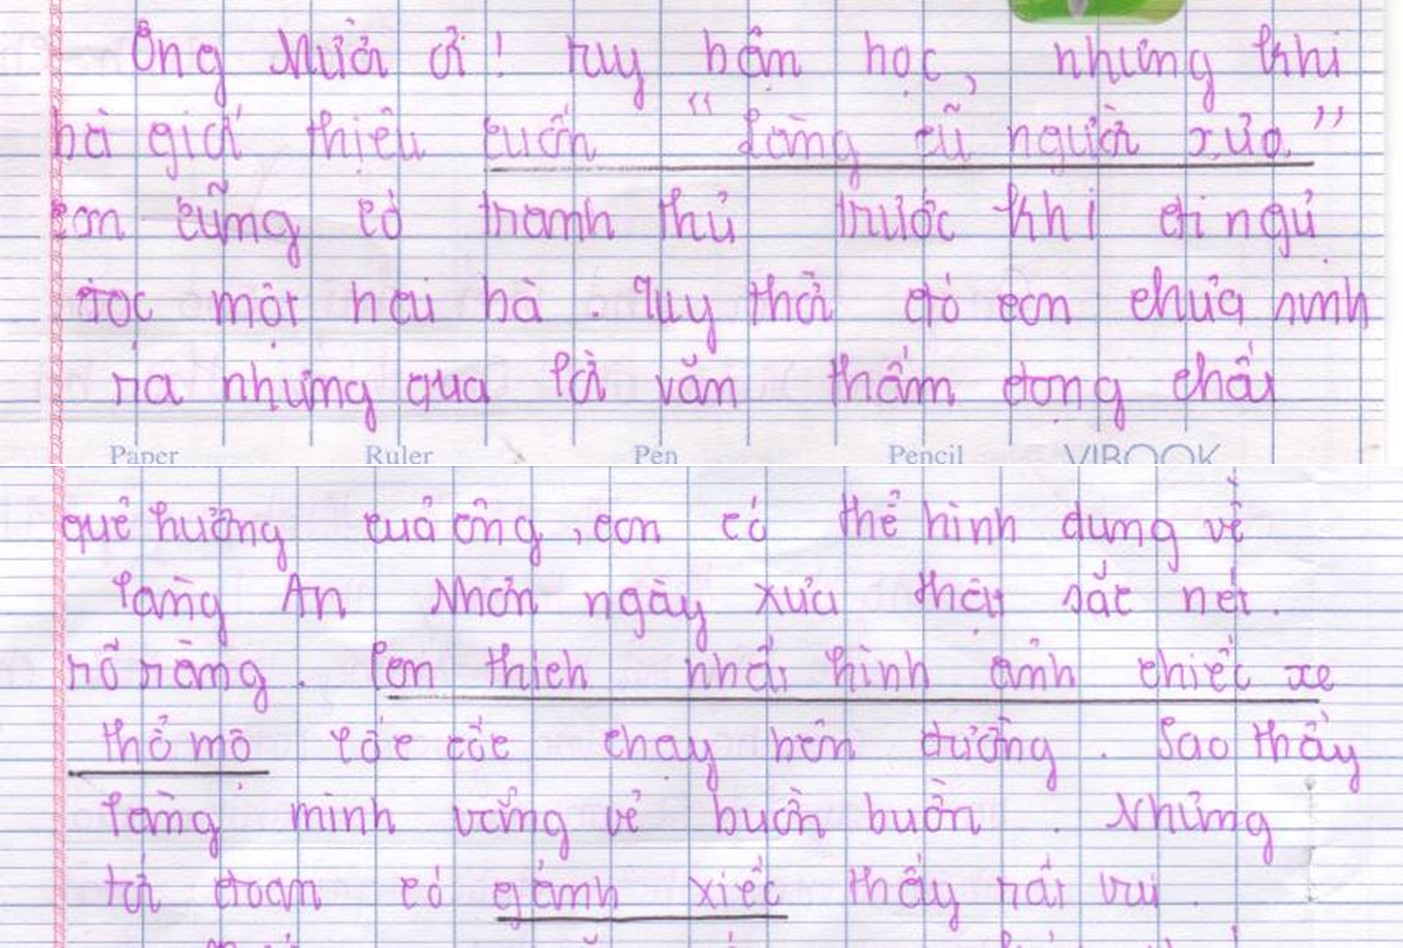 Ông Mười ơi ! tuy bận học, nhưng khi
bà giới thiệu cuốn “ Làng cũ người xưa ”
con cũng cố tranh thủ trước khi đi ngủ
đọc một hai bà . Tuy thời đó con chưa sinh
ra nhưng qua lời văn thấm đọng chất
Paper Ruler Pen Pencil VIBOOK
quê hương của ông , con có thể hình dung về
làng An Nhơn ngày xưa thật sắc nét .
rõ ràng . Con thích nhất hình ảnh chiếc xe
thổ mộ lóc cóc chạy bên đường . Sao thấy
làng mình vắng vẻ buồn buồn . Nhưng
tới đoạn có gánh xiếc thấy rất vui .